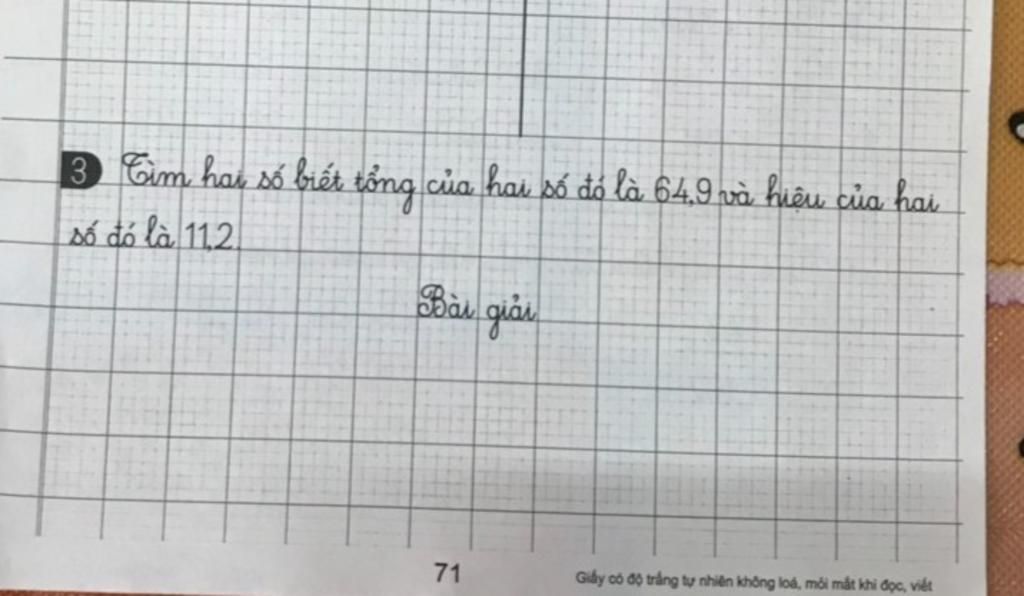 3 Tìm hai số biết tổng của hai số đó là 64,9 và hiệu của hai
số đó là 11,2.
Bài giải
71
Giấy có độ trắng tự nhiên không loá, mỏi mắt khi đọc, viết